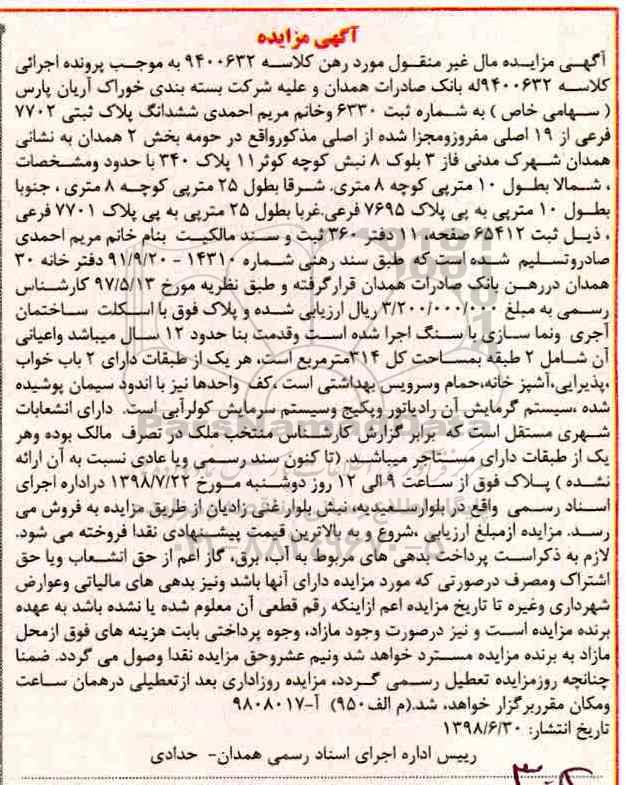 آگهی مزایده
آگهی مزایده مال غیر منقول مورد رهن کلاسه ۹۴۰۰۶۳۲ به موجب پرونده اجرائی
کلاسه ۹۴۰۰۶۳۲له بانک صادرات همدان و علیه شرکت بسته بندی خوراک آریان پارس
( سهامی خاص ) به شماره ثبت ۶۳۳۰ وخانم مریم احمدی ششدانگ پلاک ثبتی ۷۷۰۲
فرعی از ۱۹ اصلی مفروزومجزا شده از اصلی مذکورواقع در حومه بخش ۲ همدان به نشانی
همدان شهرک مدنی فاز ۳ بلوک ۸ نبش کوچه کوثر۱۱ پلاک ۳۴۰ با حدود ومشخصات
، شمالا بطول ۱۰ مترپی کوچه ۸ متری. شرقا بطول ۲۵ مترپی کوچه ۸ متری ، جنوبا
بطول ۱۰ مترپی به پی پلاک ۷۶۹۵ فرعی.غربا بطول ۲۵ مترپی به پی پلاک ۷۷۰۱ فرعی
، ذیل ثبت ۶۵۴۱۲ صفحه ۱۱ دفتر ۳۶۰ ثبت و سند مالکیت بنام خانم مریم احمدی
صادروتسلیم شده است که طبق سند رهنی شماره ۱۴۳۱۰ - ۹۱/۹/۲۰ دفتر خانه ۳۰
همدان دررهن بانک صادرات همدان قرارگرفته و طبق نظریه مورخ ۹۷/۵/۱۳ کارشناس
رسمی به مبلغ ۳/۲۰۰/۰۰۰/۰۰۰ ریال ارزیابی شده و پلاک فوق با اسکلت ساختمان
آجری ونما سازی با سنگ اجرا شده است وقدمت بنا حدود ۱۲ سال میباشد واعیانی
آن شامل ۲ طبقه بمساحت کل ۳۱۴مترمربع است، هر یک از طبقات دارای ۲ باب خواب
،پذیرایی،آشپز خانه،حمام وسرویس بهداشتی است ،کف واحدها نیز با اندود سیمان پوشیده
شده ،سیستم گرمایش آن رادیاتور وپکیج وسیستم سرمایش کولرآبی است. دارای انشعابات
شهری مستقل است که برابر گزارش کارشناس منتخب ملک در تصرف مالک بوده وهر
یک از طبقات دارای مستاجر میباشد. (تا کنون سند رسمی ویا عادی نسبت به آن ارائه
نشده ) پلاک فوق از ساعت ۹ الی ۱۲ روز دوشنبه مورخ ۱۳۹۸/۷/۲۲ دراداره اجرای
اسناد رسمی واقع دربلوارسعیدیه، نبش بلوار غنی زادیان از طریق مزایده به فروش می
رسد. مزایده ازمبلغ ارزیابی ،شروع و به بالاترین قیمت پیشنهادی نقدا فروخته می شود.
لازم به ذکراست پرداخت بدهی های مربوط به آب، برق، گاز اعم از حق انشعاب ویا حق
اشتراک ومصرف درصورتی که مورد مزایده دارای آنها باشد ونیز بدهی های مالیاتی وعوارض
شهرداری وغیره تا تاریخ مزایده اعم ازاینکه رقم قطعی آن معلوم شده یا نشده باشد به عهده
برنده مزایده است و نیز درصورت وجود مازاد، وجوه پرداختی بابت هزینه های فوق ازمحل
مازاد به برنده مزایده مسترد خواهد شد ونیم عشروحق مزایده نقدا وصول می گردد. ضمنا
چنانچه روزمزایده تعطیل رسمی گردد، مزایده روزاداری بعد ازتعطیلی درهمان ساعت
ومکان مقرربرگزار خواهد، شد.(م الف۹۵۰) آ-۹۸۰۸۰۱۷
تاریخ انتشار: ۱۳۹۸/۶/۳۰
رییس اداره اجرای اسناد رسمی همدان- حدادی